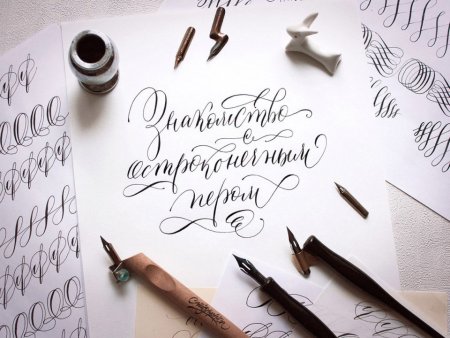 Знакомство
с
остроконечным
пером